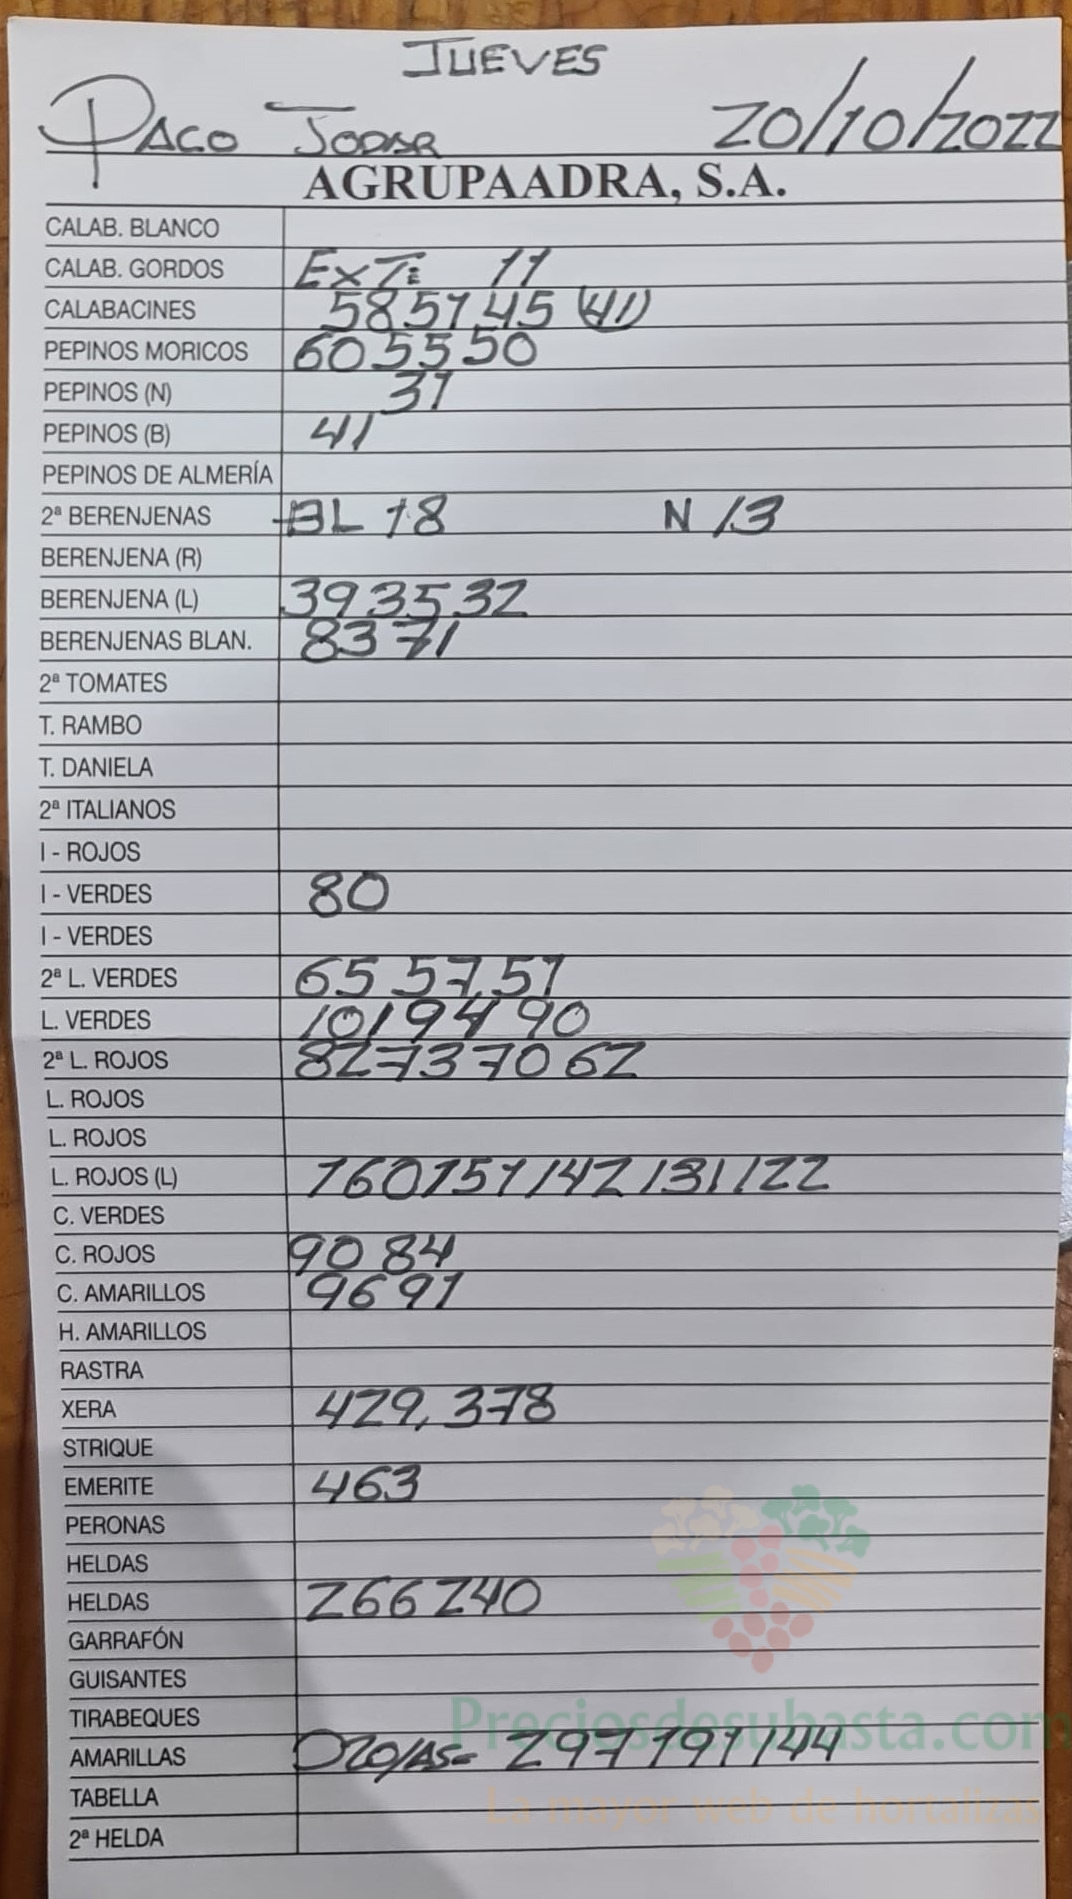 JUEVES
PACO JODAR 20/10/2022
AGRUPAADRA, S.A.
CALAB. BLANCO
CALAB. GORDOS EXT: 11
CALABACINES 58 51 45 (41)
PEPINOS MORICOS 60 55 50
PEPINOS (N) 31
PEPINOS (B) 41
PEPINOS DE ALMERÍA
2ª BERENJENAS BL 18 N 13
BERENJENA (R)
BERENJENA (L) 39 35 32
BERENJENAS BLAN. 83 71
2ª TOMATES
T. RAMBO
T. DANIELA
2ª ITALIANOS
I - ROJOS
I - VERDES 80
I - VERDES
2ª L. VERDES 65 57 51
L. VERDES 101 94 90
2ª L. ROJOS 82 73 70 62
L. ROJOS
L. ROJOS
L. ROJOS (L) 160 151 142 131 122
C. VERDES
C. ROJOS 90 84
C. AMARILLOS 96 91
H. AMARILLOS
RASTRA
XERA 429, 378
STRIQUE
EMERITE 463
PERONAS
HELDAS
HELDAS 266 240
GARRAFÓN
GUISANTES
TIRABEQUES
Preciosdesubasta.com
AMARILLAS 297 191 144
La mayor web de hortalizas
TABELLA
2ª HELDA